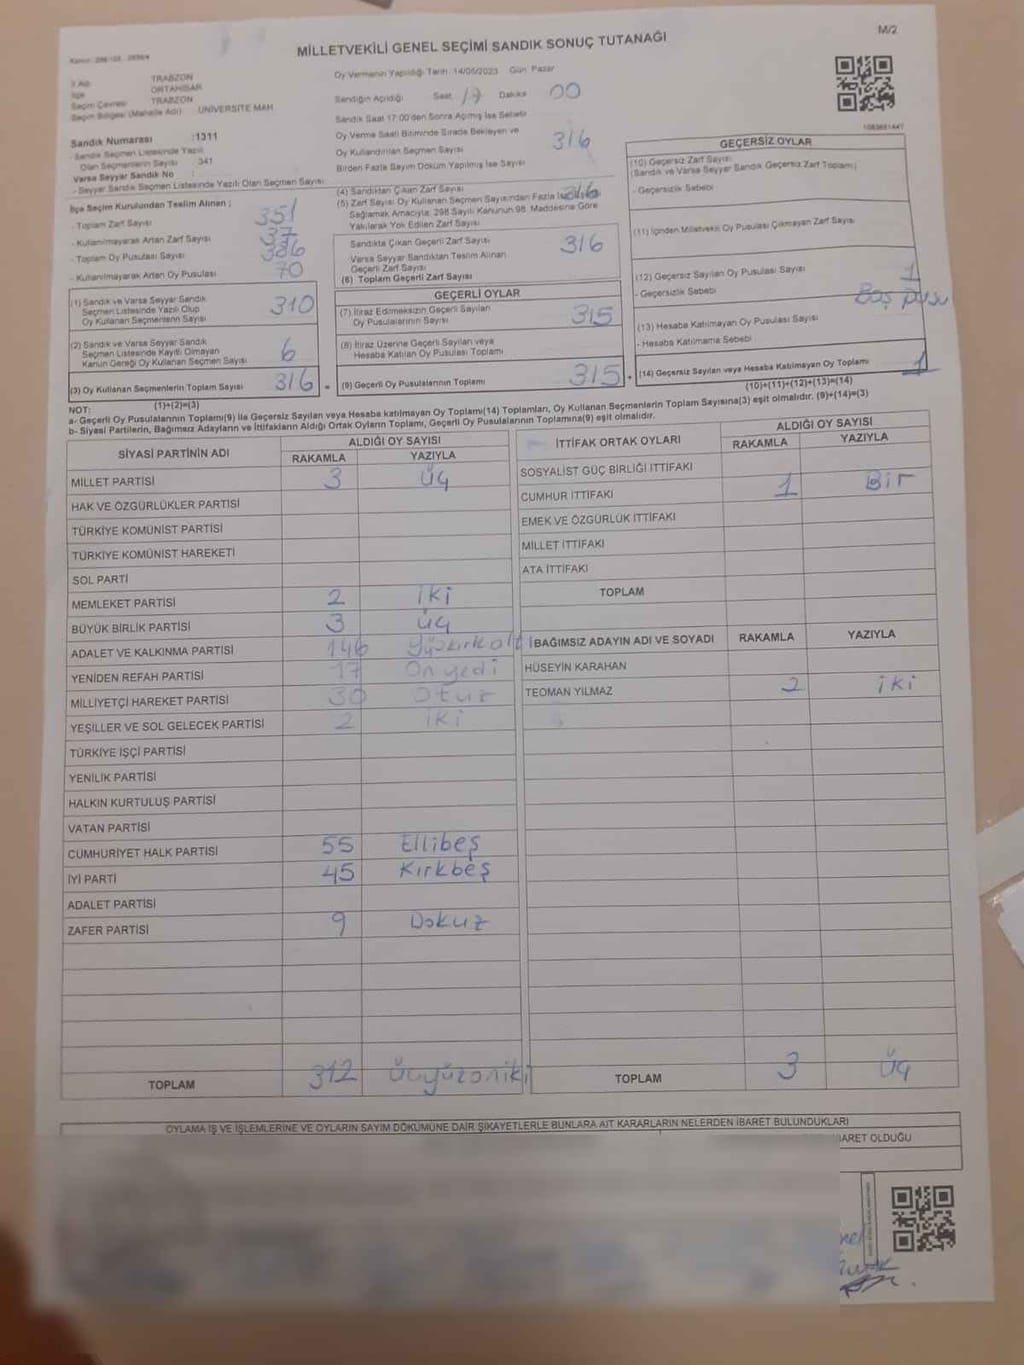 M/2
MİLLETVEKİLİ GENEL SEÇİMİ SANDIK SONUÇ TUTANAĞI
İl Adı TRABZON
İlçe ORTAHİSAR
Seçim Çevresi TRABZON
Seçim Bölgesi (Mahalle Adı) ÜNİVERSİTE MAH.
Sandık Numarası :1311
- Sandık Seçmen Listesinde Yazılı
Olan Seçmenlerin Sayısı 341
Varsa Seyyar Sandık No :
- Seyyar Sandık Seçmen Listesinde Yazılı Olan Seçmen Sayısı
İlçe Seçim Kurulundan Teslim Alınan ;
- Toplam Zarf Sayısı 351
- Kullanılmayarak Artan Zarf Sayısı 37
- Toplam Oy Pusulası Sayısı 386
- Kullanılmayarak Artan Oy Pusulası 70
(1) Sandık ve Varsa Seyyar Sandık
Seçmen Listesinde Yazılı Olup
Oy Kullanan Seçmenlerin Sayısı 310
(2) Sandık ve Varsa Seyyar Sandık
Seçmen Listesinde Kayıtlı Olmayan
Kanun Gereği Oy Kullanan Seçmen Sayısı 6
(3) Oy Kullanan Seçmenlerin Toplam Sayısı 316 =
(1)+(2)=(3)
Oy Vermenin Yapıldığı Tarih :14/05/2023 Gün: Pazar
Sandığın Açıldığı Saat 17 Dakika 00
Sandık Saat 17:00'den Sonra Açılmış İse Sebebi
Oy Verme Saati Bitiminde Sırada Bekleyen ve
Oy Kullandırılan Seçmen Sayısı 316
Birden Fazla Sayım Döküm Yapılmış İse Sayısı
(4) Sandıktan Çıkan Zarf Sayısı 316
(5) Zarf Sayısı Oy Kullanan Seçmen Sayısından Fazla İse
Sağlamak Amacıyla; 298 Sayılı Kanunun 98. Maddesine Göre
Yakılarak Yok Edilen Zarf Sayısı
Sandıkta Çıkan Geçerli Zarf Sayısı 316
Varsa Seyyar Sandıktan Teslim Alınan
Geçerli Zarf Sayısı
(6) Toplam Geçerli Zarf Sayısı
GEÇERLİ OYLAR
(7) İtiraz Edilmeksizin Geçerli Sayılan
Oy Pusulalarının Sayısı 315
(8) İtiraz Üzerine Geçerli Sayılan veya
Hesaba Katılan Oy Pusulası Toplamı
(9) Geçerli Oy Pusulalarının Toplamı 315 +
1083681447
GEÇERSİZ OYLAR
(10) Geçersiz Zarf Sayısı
(Sandık ve Varsa Seyyar Sandık Geçersiz Zarf Toplamı)
- Geçersizlik Sebebi
(11) İçinden Milletvekili Oy Pusulası Çıkmayan Zarf Sayısı
(12) Geçersiz Sayılan Oy Pusulası Sayısı 1
- Geçersizlik Sebebi
(13) Hesaba Katılmayan Oy Pusulası Sayısı
- Hesaba Katılmama Sebebi
(14) Geçersiz Sayılan veya Hesaba Katılmayan Oy Toplamı 1
(10)+(11)+(12)+(13)=(14)
NOT:
a- Geçerli Oy Pusulalarının Toplamı(9) ile Geçersiz Sayılan veya Hesaba katılmayan Oy Toplamı(14) Toplamları, Oy Kullanan Seçmenlerin Toplam Sayısına(3) eşit olmalıdır. (9)+(14)=(3)
b- Siyasi Partilerin, Bağımsız Adayların ve İttifakların Aldığı Ortak Oyların Toplamı, Geçerli Oy Pusulalarının Toplamına(9) eşit olmalıdır.
SİYASİ PARTİNİN ADI ALDIĞI OY SAYISI
RAKAMLA YAZIYLA
MİLLET PARTİSİ 3 Üç
HAK VE ÖZGÜRLÜKLER PARTİSİ
TÜRKİYE KOMÜNİST PARTİSİ
TÜRKİYE KOMÜNİST HAREKETİ
SOL PARTİ
MEMLEKET PARTİSİ 2 iki
BÜYÜK BİRLİK PARTİSİ 3 üç
ADALET VE KALKINMA PARTİSİ 146 Yüzkırkaltı
YENİDEN REFAH PARTİSİ 17 Onyedi
MİLLİYETÇİ HAREKET PARTİSİ 30 Otuz
YEŞİLLER VE SOL GELECEK PARTİSİ 2 iki
TÜRKİYE İŞÇİ PARTİSİ
YENİLİK PARTİSİ
HALKIN KURTULUŞ PARTİSİ
VATAN PARTİSİ
CUMHURİYET HALK PARTİSİ 55 Ellibeş
İYİ PARTİ 45 Kırkbeş
ADALET PARTİSİ
ZAFER PARTİSİ 9 Dokuz
TOPLAM 312 Üçyüzoniki
İTTİFAK ORTAK OYLARI ALDIĞI OY SAYISI
RAKAMLA YAZIYLA
SOSYALİST GÜÇ BİRLİĞİ İTTİFAKI
CUMHUR İTTİFAKI 1 Bir
EMEK VE ÖZGÜRLÜK İTTİFAKI
MİLLET İTTİFAKI
ATA İTTİFAKI
TOPLAM
BAĞIMSIZ ADAYIN ADI VE SOYADI RAKAMLA YAZIYLA
HÜSEYİN KARAHAN
TEOMAN YILMAZ 2 iki
TOPLAM 3 Üç
OYLAMA İŞ VE İŞLEMLERİNE VE OYLARIN SAYIM DÖKÜMÜNE DAİR ŞİKAYETLERLE BUNLARA AİT KARARLARIN NELERDEN İBARET BULUNDUKLARI
İBARET OLDUĞU